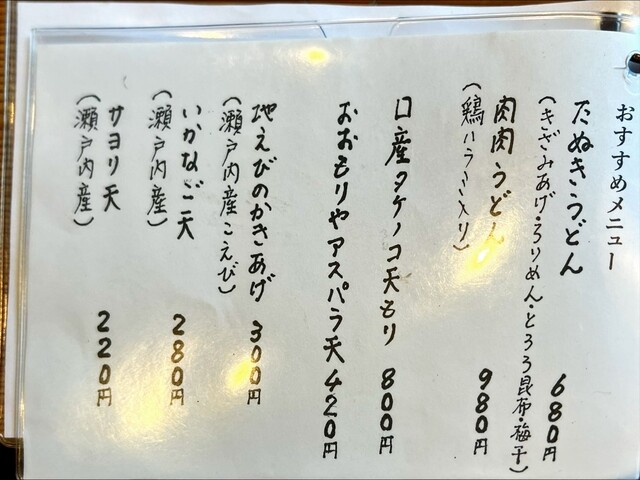 おすすめメニュー
たぬきうどん 680円
(きざみあげ・ちりめん・とろろ昆布・梅干)
肉肉うどん 980円
(鶏ハラミ入り)
口産タケノコ天もり 800円
おおもりやアスパラ天 420円
地えびのかきあげ 300円
(瀬戸内産こえび)
いかなご天 280円
(瀬戸内産)
サヨリ天 220円
(瀬戸内産)